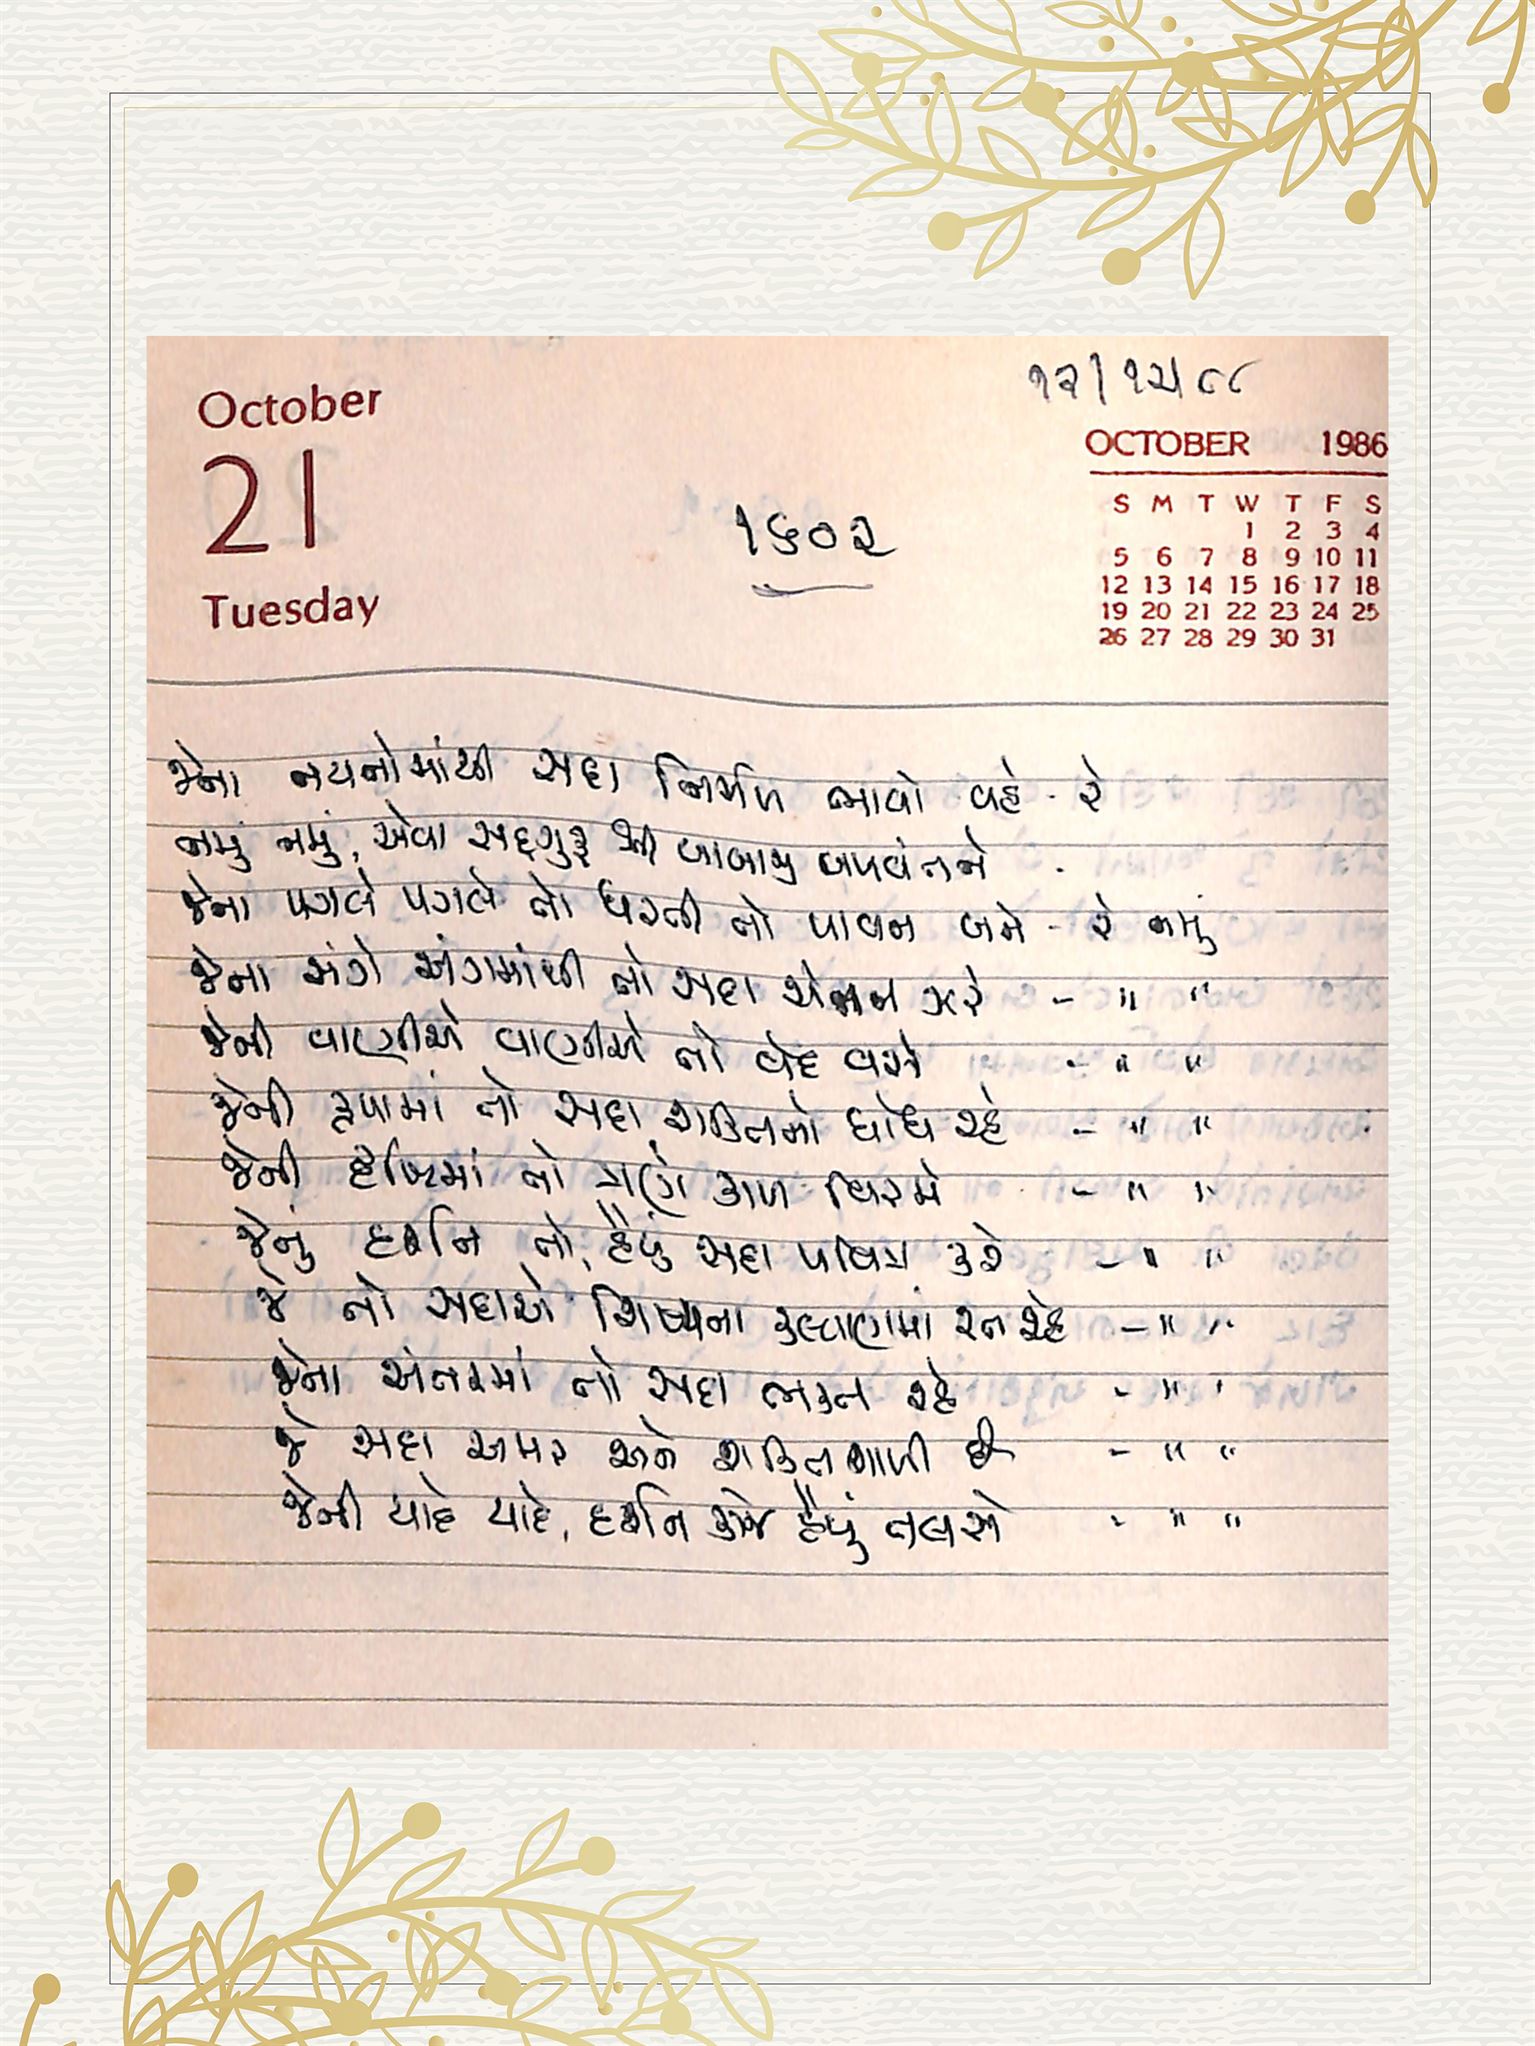 October
21
Tuesday
૧૨/૧૨/૮૮
OCTOBER 1986
S M T W T F S
1 2 3 4
5 6 7 8 9 10 11
12 13 14 15 16 17 18
19 20 21 22 23 24 25
26 27 28 29 30 31
૧૬૦૨
જેના નયનોમાંથી સદા નિર્મળ ભાવો વહે - રે
નમું નમું, એવા સદ્દગુરૂ શ્રી બાબાજી ભગવંતને
જેના પગલે પગલે તો ધરતી તો પાવન બને - રે નમું
જેના અંગે અંગમાંથી તો સદા ઝરે - " "
જેની વાણીએ વાણીએ તો વેદ વસે - " "
જેની કૃપામાં તો સદા શક્તિનો ધોધ રહે - " "
જેની દૃષ્ટિમાં તો ત્રણે કાળ વિરમે - " "
જેનું દર્શન તો, હૈયું સદા પવિત્ર કરે - " "
જે તો સદાએ શિષ્યના કલ્યાણમાં રત રહે - " "
જેના અંતરમાં તો સદા ભક્ત રહે - " "
જે સદા અમર અને શક્તિશાળી છે - " "
જેની યાદે યાદે, દર્શન કાજે હૈયું તલસે - " "